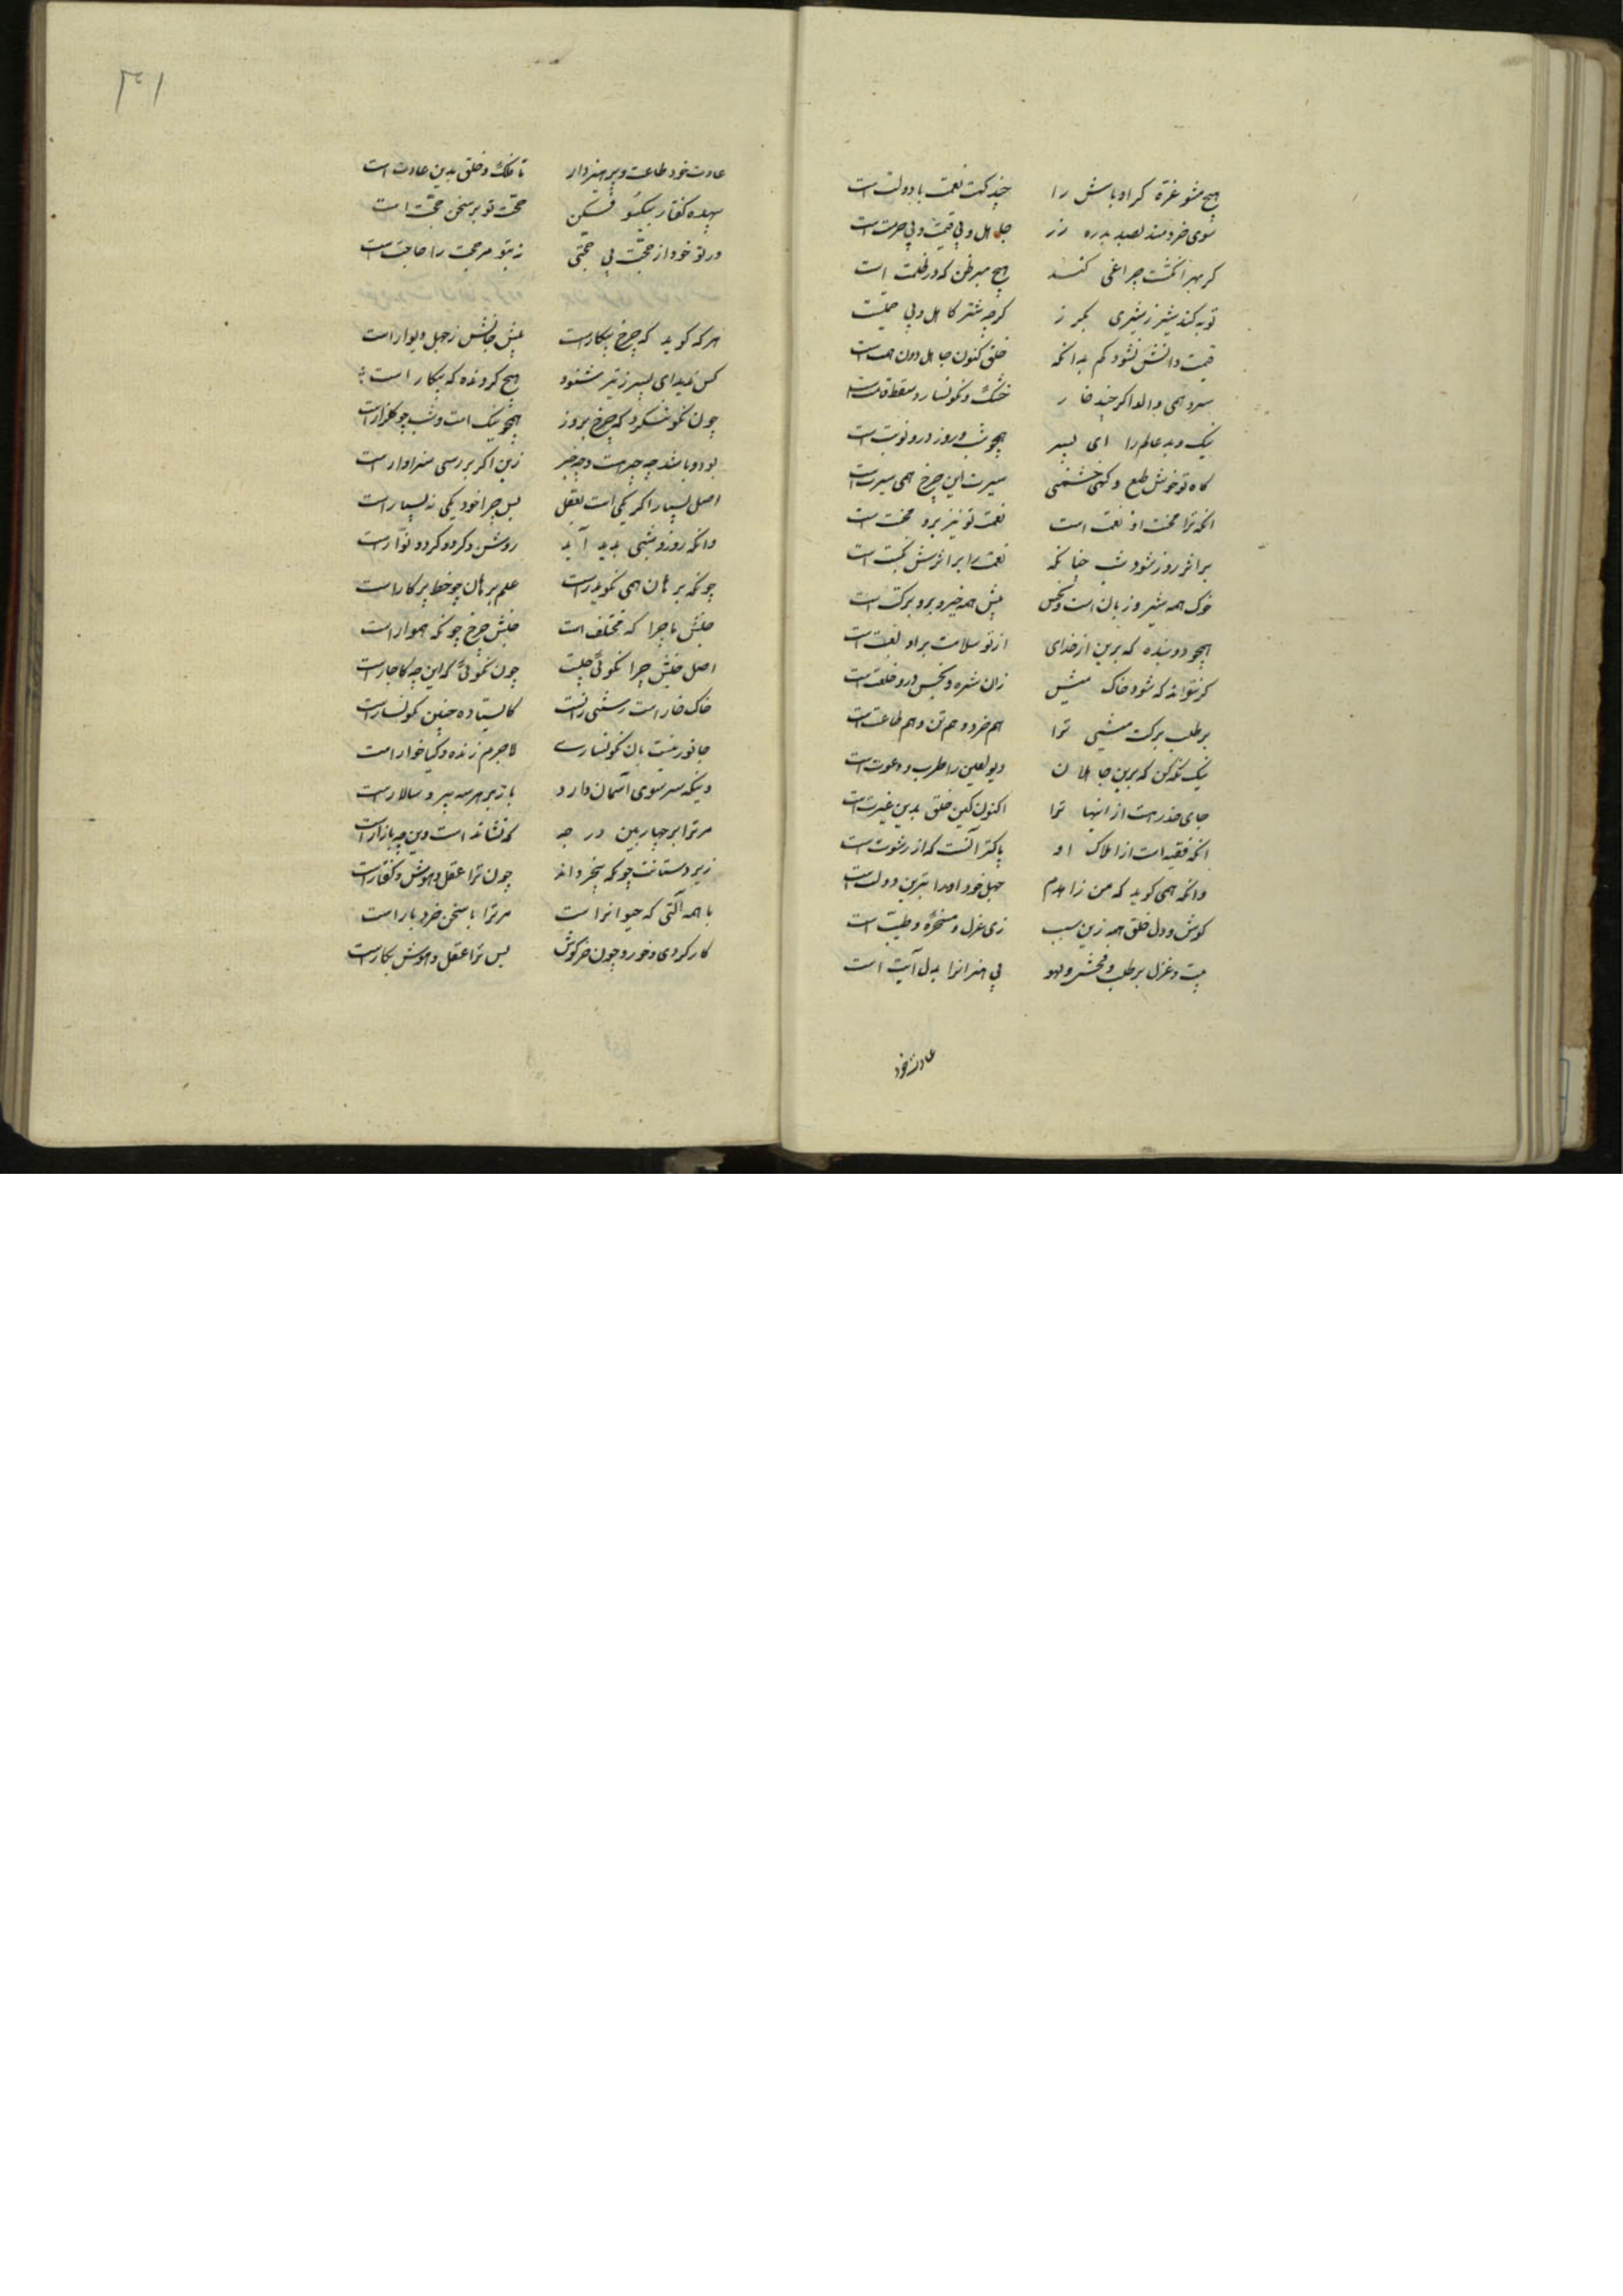 هیچ مشو غرّه کر اوباش را چند کهت نعمت یا دولت است
سوی خردمند بصد بدره زر جاهل و بی قیمت و بی حرمت است
کر بهر انکشت چراغی کنند هیچ مبر ظن که در ظلمت است
توبه کند شیر ز شیری هرگز کرچه شتر کاهل و بی حمیت
قیمت دانش نشود کم بدانکه خلق کنون جاهل و دون همت است
سرو همی والد اکر چند خار خشک و نکونسار و سقط قامت است
نیک و بد عالم را ای پسر همچو شب و روز درو نوبت است
کاه تو خوش طبع و کهی خشمنی سیرت این چرخ همی سیرت است
انکه ترا محنت او نعمت است نعمت تو نیز برو محنت است
بر اثر روز شود شب چنانکه نعمت را بر اثرش نکبت است
خوک همه شر و زیان است و نحس میش همه خیر و بر و برکت است
همچو دو بنده که برین از خدای از تو سلامت بر او لعنت است
کر نتواند که شود خاک میش زان شره و نحس درو خلقت است
بر طلب برکت میشی ترا هم خرد و هم تن و هم طاعت است
نیک نکه کن که برین جاهلان دیو لعین را طرب و دعوت است
جای حذر هست از اینها ترا اکنون کین خلق بدین غیرت است
انکه فقیه است از املاک او پاکتر آنست که از رشوت است
وانکه همی کوید که من زاهدم جهل خود او را بترین دولت است
کوش و دل خلق همه زین سبب زی غزل و مسخره و طیبت است
بیت و غزل بر طلب و فحش و لهو بی هنرانرا بدل آیت است
عادت خود
۳۱
عادت خود طاعت و پرهیز دار تا فلک و خلق بدین عادت است
بیهده کفتار بیکسو فکن حجّت تو بر سخن حجّت است
ور تو خود از حجّت بی حجّتی زی تو مر حجّت را حاجت است
هر که کوید که چرخ بیکار است پیش جانش ز جهل دیوار است
کس ندید ای پسر ز تیر شنود هیچ کرونده که بیکار است
چون نکو ننکرد که چرخ بروز همچو نیک است و شب چو کلزار است
بودو باشد چه چیز هست و چه چیز زین اکر بررسی سزاوار است
اصل بسیار اکر یکی است بعقل پس چرا خود یکی نه بسیار است
وانکه روز و شبی پدید آید روشن و کرد کرد و نوّار است
چونکه برهان همی نکوید راست علم برهان چو خط پرکار است
جنبش ما چرا که مختلف است جنبش چرخ چونکه هموار است
اصل جنبش چرا نکوئی چیست چون نکوئی که این چه کاچار است
خاک خار است رستنی زانست کایستاده چنین نکونسار است
جانور نیست با نکونساری لاجرم زنده و کیاخوار است
وینکه سر سوی آسمان دارد باز بر هر سه میر و سالار است
مر ترا بر چهارمین درجه که نشاند است وین چه بازار است
زیر دستانت چونکه بیخرد اند چون ترا عقل و هوش و کفتار است
با همه آلتی که حیوانراست مر ترا با سخن خرد یار است
کار کردی و خور و چون خرکوش پس ترا عقل و هوش بکار است